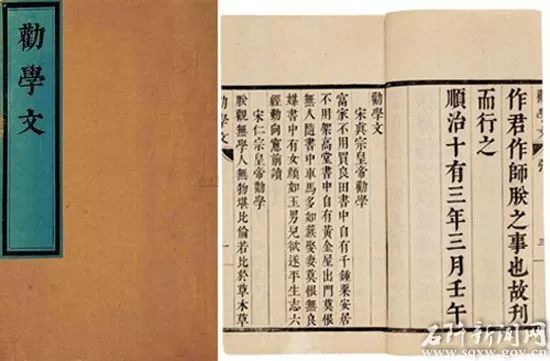 勸學文
作君作師朕之事也故刊
而行之
順治十有三年三月壬午
勸學文
宋真宗皇帝勸學
富家不用買良田書中自有千鍾粟安居
不用架高堂書中自有黃金屋出門莫恨
無人隨書中車馬多如簇娶妻莫恨無良
媒書中有女顏如玉男兒欲遂平生志六
經勤向窻前讀
宋仁宗皇帝勸學
朕觀無學人無物堪比倫若比於草木草
勸學文 一
石阡新闻网
www.sqxw.gov.cn